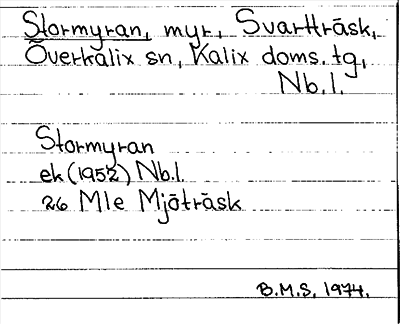 Stormyran, myr, Svartträsk,
Överkalix sn, Kalix doms. tg,
Nb.l.
Stormyran
ek (1952) Nb.l.
26 Mle Mjöträsk
B.M.S, 1974.